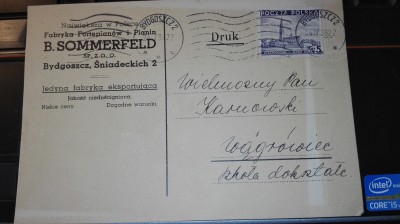 Największa w Polsce
Fabryka Fortepianów i Pianin
B. SOMMERFELD
Sp. z o. o.
Bydgoszcz, Śniadeckich 2
Jedyna fabryka eksportująca
Jakość niedościgniona.
Niskie ceny Dogodne warunki.
Druk
BYDGOSZCZ 2
POCZTA POLSKA
5
Wielmożny Pan
Karnowski
Wągrówiec
szkoła dokształc.
intel
CORE i5